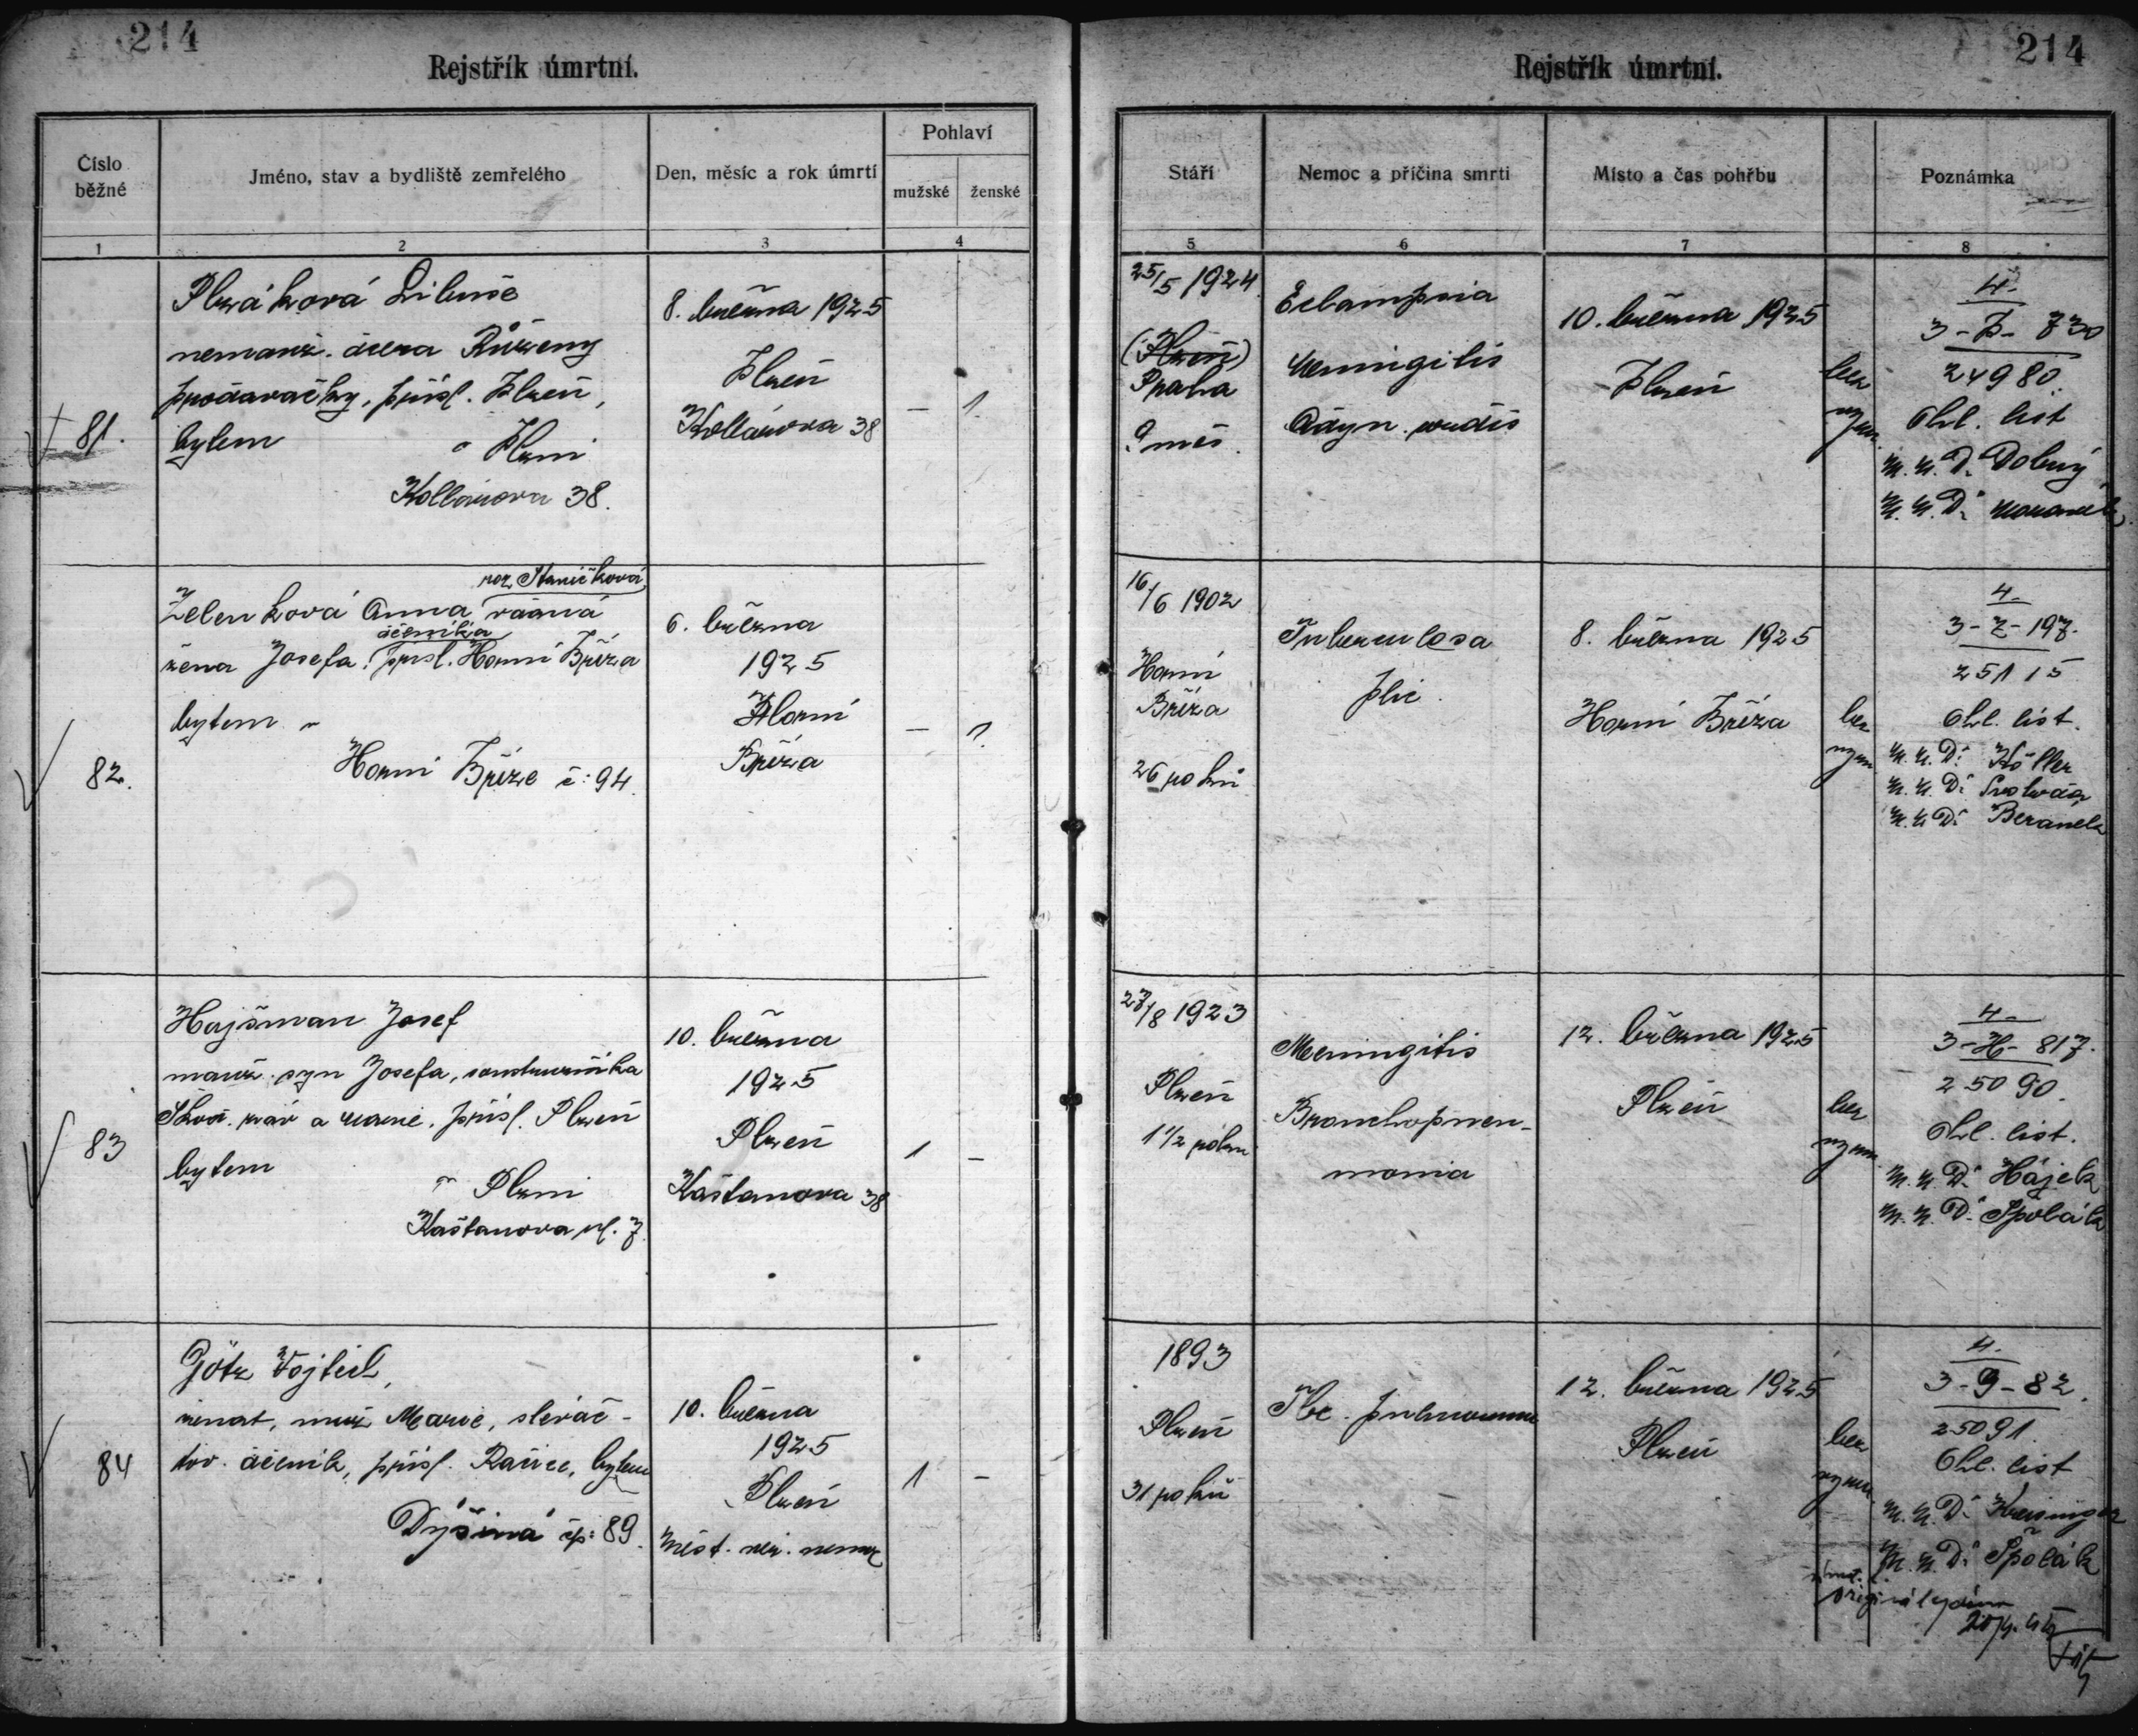 214
Rejstřík úmrtní.
Číslo běžné
Jméno, stav a bydliště zemřelého
Den, měsíc a rok úmrtí
Pohlaví
mužské
ženské
1
2
3
4
81.
Plzáková Libuše
nemanž. dcera Růženy
prodavačky, přísl. Plzeň,
bytem v Plzni
Kollárova 38.
8. března 1925
Plzeň
Kollárova 38
— 1
82.
roz. Staníčková
Zelenková Anna, vdaná
dělníka
žena Josefa, přísl. Horní Bříza
bytem v
Horní Bříze č: 94.
6. března
1925
Horní
Bříza
— 1.
83
Hajšman Josef
manž. syn Josefa, soustružníka
Škod. záv. a Marie, přísl. Plzeň
bytem v Plzni
Kaštanova ul. 7.
10. března
1925
Plzeň
Kaštanova 38
1 —
84
Götz Vojtěch,
ženat, muž Marie, slévač-
dělník, přísl. bytem
Dýšina čp: 89.
10. března
1925
Plzeň
Měst. nemoc
1 —
214
Rejstřík úmrtní.
Stáří
Nemoc a příčina smrti
Místo a čas pohřbu
Poznámka
5
6
7
8
25/5 1924
(Plzeň)
Praha
9 měs.
Eclampsia
Meningitis
Adyn. cordis
10. března 1925
Plzeň
bez
vyzn.
4.
3-P-730
24980.
Ohl. list
M.U.Dr. Dobrý
M.U.Dr.
16/6 1902
Horní
Bříza
26 roků
Tuberculosa
plic.
8. března 1925
Horní Bříza
bez
vyzn
4.
3-Z-197.
25115
Ohl. list.
M.U.Dr. Köller
M.U.Dr.
M.U.Dr. Beranek
27/8 1923
Plzeň
1 1/2 roku
Meningitis
Bronchopneu-
monia
12. března 1925
Plzeň
bez
vyzn.
4.
3-H-817.
25090.
Ohl. list.
M.U.Dr. Hájek
M.U.Dr. Špolák
1893
Plzeň
31 roků
Tbc. pulmonum
12. března 1925
Plzeň
bez
vyzn.
4.
3-G-82.
25091.
Ohl. list
M.U.Dr.
M.U.Dr. Špolák
originál vydán